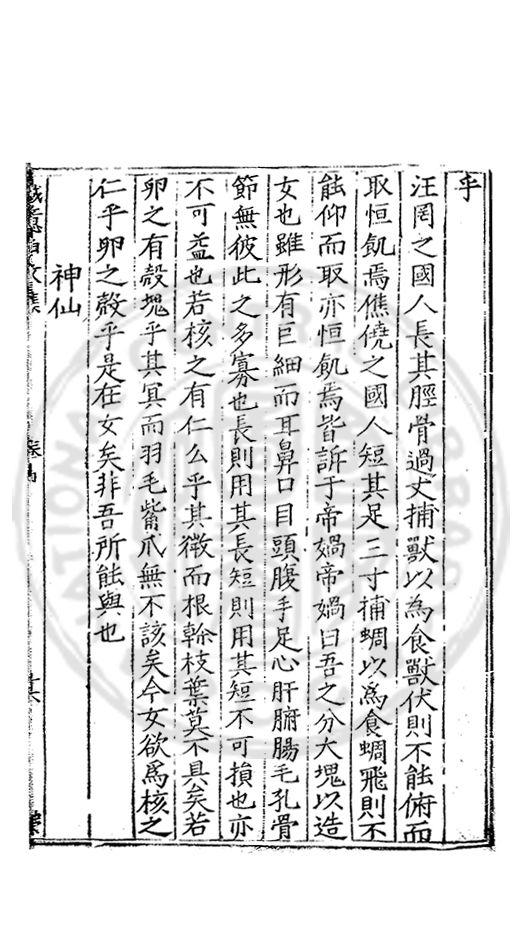 乎
汪罔之國人長其脛骨過丈捕獸以為食獸伏則不能俯而
取恒飢焉僬僥之國人短其足三寸捕蜩以為食蜩飛則不
能仰而取亦恒飢焉皆訴于帝媧帝媧曰吾之分大塊以造
女也雖形有巨細而耳鼻口目頭腹手足心肝腑腸毛孔骨
節無彼此之多寡也長則用其長短則用其短不可損也亦
不可益也若核之有仁么乎其微而根榦枝葉莫不具矣若
卵之有殼塊乎其冥而羽毛觜爪無不該矣今女欲為核之
仁乎卵之殼乎是在女矣非吾所能與也
神仙